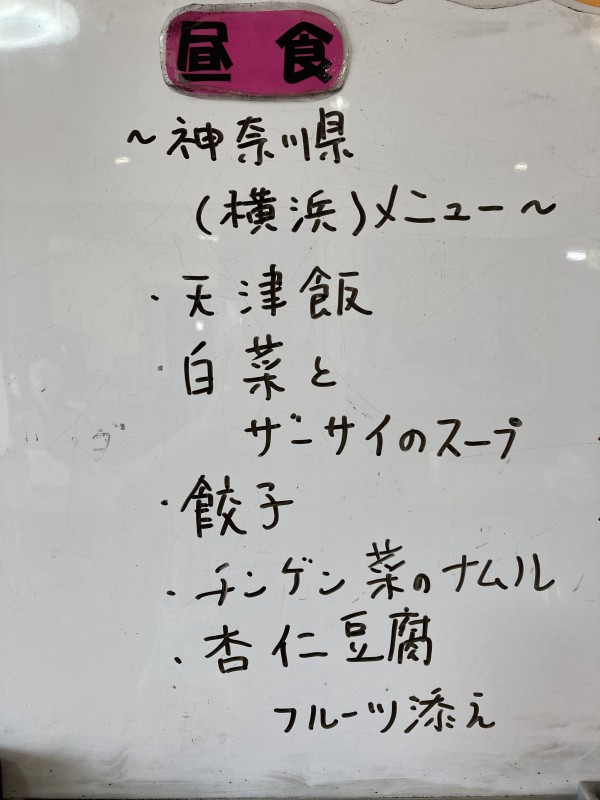 昼食
～神奈川県
(横浜)メニュー～
・天津飯
・白菜と
ザーサイのスープ
・餃子
・チンゲン菜のナムル
・杏仁豆腐
フルーツ添え